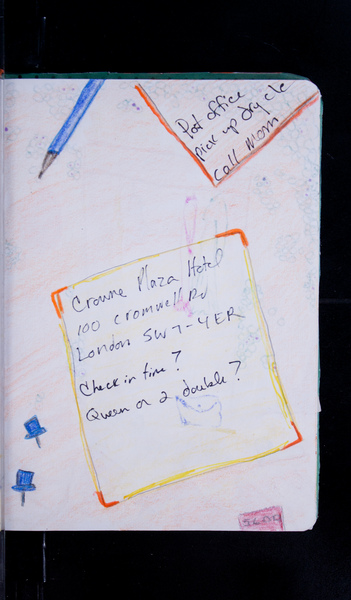 Post office
pick up dry cle
call Mom
Crowne Plaza Hotel
100 Cromwell Rd
London SW7-4ER
Check in time?
Queen or 2 double?